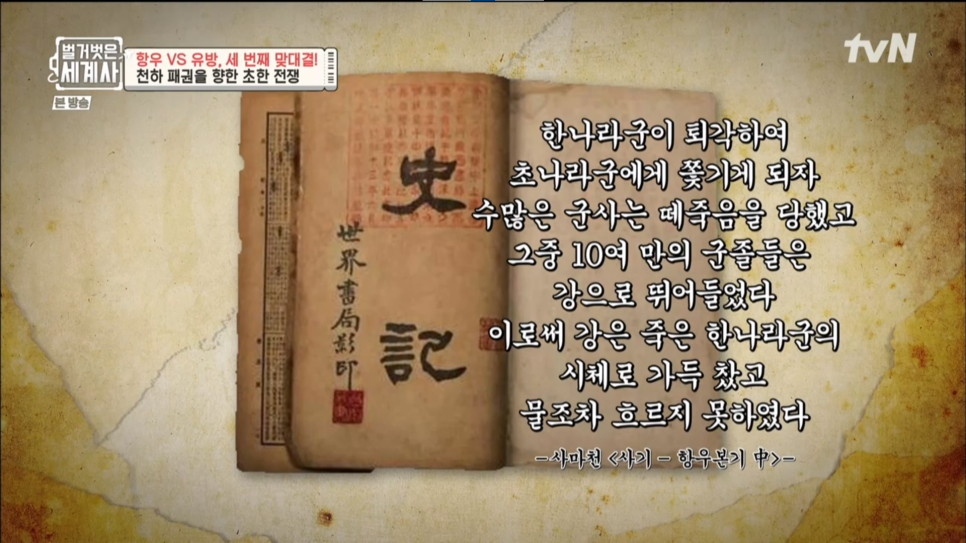 벌거벗은
세계사
본 방송
항우 VS 유방, 세 번째 맞대결!
천하 패권을 향한 초한 전쟁
tvN
史記
世界書局影印
한나라군이 퇴각하여
초나라군에게 쫓기게 되자
수많은 군사는 떼죽음을 당했고
그중 10여 만의 군졸들은
강으로 뛰어들었다
이로써 강은 죽은 한나라군의
시체로 가득 찼고
물조차 흐르지 못하였다
-사마천 <사기 - 항우본기 中>-